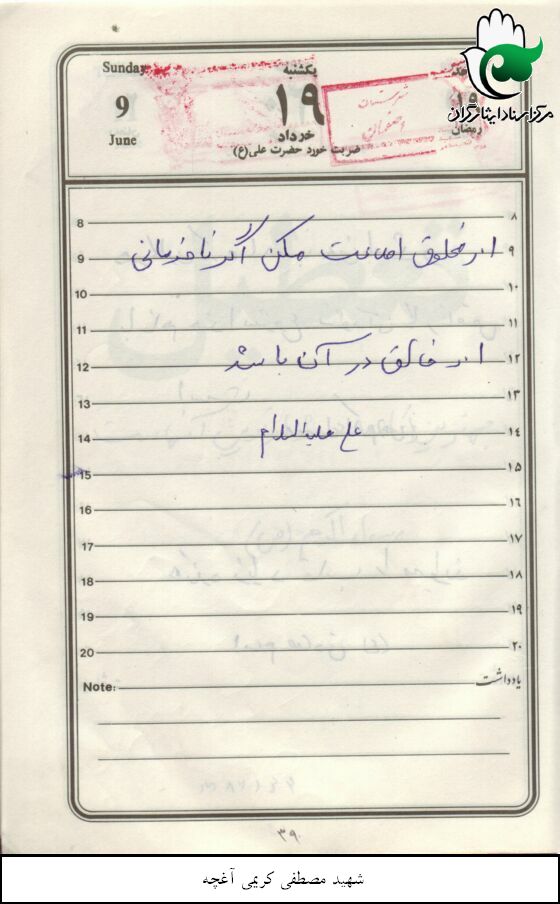 مرکز اسناد ایثارگران
Sunday یکشنبه
9 ۱۹ ۱۹
June خرداد رمضان
ضربت خورد حضرت علی(ع)
شهرستان
اصفهان
8 ۸
9 از مخلوق اطاعت مکن اگر نافرمانی ۹
10 ۱۰
11 ۱۱
12 از خالق در آن باشد ۱۲
13 ۱۳
14 علی علیه السلام ۱۴
15 ۱۵
16 ۱۶
17 ۱۷
18 ۱۸
19 ۱۹
20 ۲۰
Note: یادداشت
۳۹۰
شهید مصطفی کریمی آغچه